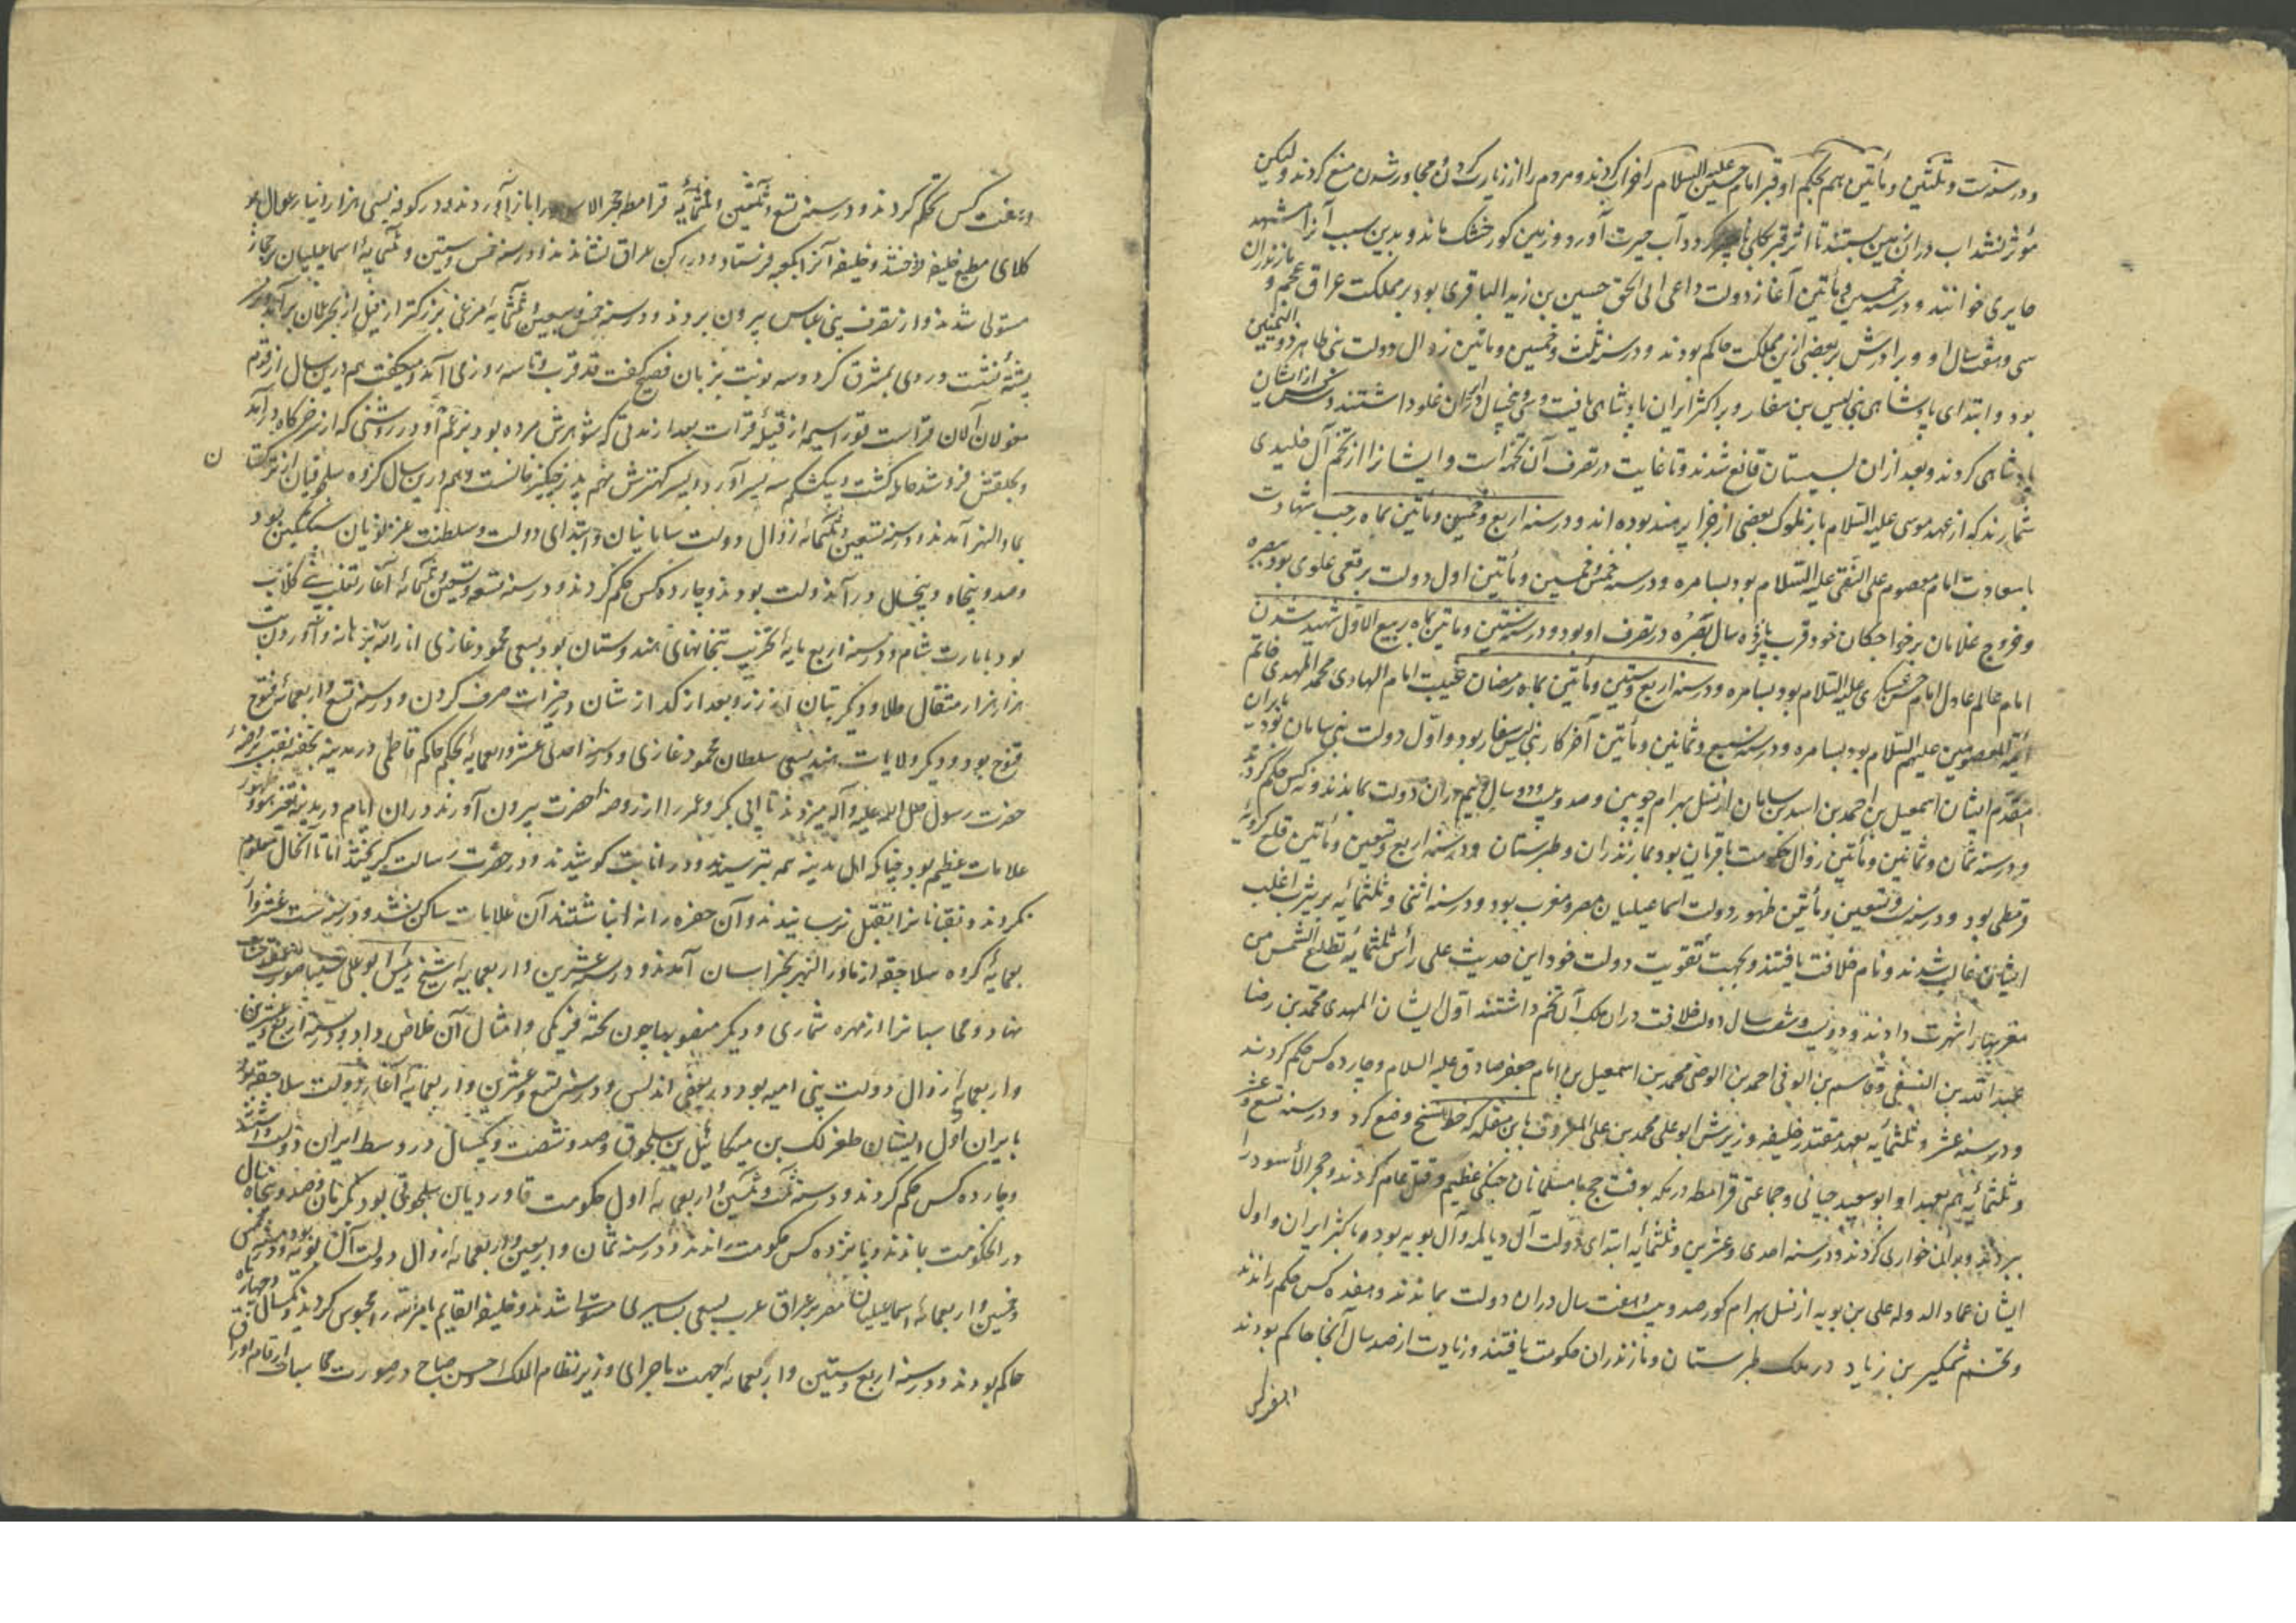 و در سنه ست و ثلثین و مأتین هم بحکم او قبر امام حسین علیه السلام را خراب کردند و مردم را از زیارت کردن و مجاور شدن منع کردند و لیکن
مؤثر نشد اب در ان زمین بستند تا اثر قبر بکلی ناچیز کردد آب حیرت آورد و زمین کور خشک ماند و بدین سبب آنرا مشهد
حایری خوانند و در سنه خمسین و مأتین آغاز دولت داعی الی الحق حسین بن زید الباقری بود بر مملکت عراق عجم و مازندران
سی و هفت سال او و برادرش بر بعضی ازین مملکت حاکم بودند و در سنه ثلث و خمسین و مأتین زوال دولت بنی طاهر ذو الیمینین
بود و ابتدای پادشاهی بنی لیس بن صفار و بر اکثر ایران پادشاهی یافت و سی و پنجسال در ایران غلو داشتند و سه کس از ایشان
پادشاهی کردند و بعد از ان بسیستان قانع شدند و تا غایت در تصرف آن تخمه است و ایشانرا از تخم آل خلیدی
شمارند که از عهد موسی علیه السلام باز ملوک بعضی از جزایر هند بوده اند و در سنه اربع و خمسین و مأتین بماه رجب شهادت
با سعادت امام معصوم علی النقی علیه السلام بود بسامره و در سنه خمس و خمسین و مأتین اول دولت برقعی علوی بود ببصره
و خروج غلامان بر خواجکان خود قرب پانزده سال بصره در تصرف او بود و در سنه ستین و مأتین بماه ربیع الاول شهید شدن
امام عالم عادل امام حسن عسکری علیه السلام بود بسامره و در سنه اربع و ستین و مأتین بماه رمضان غیبت امام الهادی محمد المهدی خاتم
ائمه المعصومین علیهم السلام بود بسامره و در سنه سبع و ثمانین و مأتین آخر کار بنی لیس صفار بود و اول دولت بنی سامان بود بایران
مقدم ایشان اسمعیل بن احمد بن اسد بن سامان از نسل بهرام چوبین و صد و بیست و دو سال و نیم در ان دولت بماندند و نه کس حکم کردند
و در سنه ثمان و ثمانین و مأتین زوال حکومت باقریان بود بمازندران و طبرستان و در سنه اربع و تسعین و مأتین قلع کرویه
قرمطی بود و در سنه ست و تسعین و مأتین ظهور دولت اسماعیلیان مصر و مغرب بود و در سنه اثنی و ثلثمائه بر بیشتر اغلب
ایشان غالب شدند و نام خلافت یافتند و بجهت تقویت دولت خود این حدیث علی رأس ثلثمائه تطلع الشمس من
مغربها را شهرت دادند و دویست و شصت سال دولت خلافت در ان ملک آن تخم داشتند اول ایشان المهدی محمد بن رضا
عبد الله بن التقی و قاسم بن الوفی احمد بن الوصی محمد بن اسمعیل بن امام جعفر صادق علیه السلام و چارده کس حکم کردند
و در سنه عشر و ثلثمائه بعهد مقتدر خلیفه وزیرش ابو علی محمد بن علی المعروف بابن مقله که خط نسخ وضع کرد و در سنه تسع عشر
و ثلثمائه هم بعهد او ابو سعید جبائی و جماعتی قرامطه در مکه بوقت حج با مسلمانان جنکی عظیم و قتل عام کردند و حجر الأسود را
ببردند و بدان خواری کردند و در سنه احدی و عشرین و ثلثمائه ابتدای دولت آل دیالمه و آل بویه بود و باکثر ایران و اول
ایشان عماد الدوله علی بن بویه از نسل بهرام کور صد و بیست و هفت سال در ان دولت بماندند و هفده کس حکم راندند
و تخم شمکیر بن زیاد در ملک طبرستان و مازندران حکومت یافتند و زیادت از صد سال آنجا حاکم بودند
و هفت کس حکم کردند و در سنه تسع و ثلثین و ثلثمائه قرامطه حجر الاسود را باز آوردند و در کوفه بسی هزار دینار
کلای مطیع خلیفه فروختند و خلیفه آنرا بکعبه فرستاد و در رکن عراق نشاندند و در سنه خمس و ستین و ثلثمایه اسماعیلیان بر حجاز
مستولی شدند و از تصرف بنی عباس بیرون بردند و در سنه خمس و سبعین و ثلثمایه مرغی بزرکتر از فیل از بحر عمان برآمد و بر
پشته نشست و روی بمشرق کرد و سه نوبت بزبان فصیح کفت قد قرب و تا سه روز می آمد و میکفت هم درین سال از قوم
مغولان آلان قواست قورا سیمه از قبیله قرات بعد از مدتی که شوهرش مرده بود بزعم او در روشنی که از خرکاه درآمد
و بحلقش فرو شد حامله کشت و بیک شکم سه پسر آورد و پسر کهترش نهم پدر چنکیز خانست و هم درین سال کروه سلجوقیان از ترکستان
بماورالنهر آمدند و در سنه تسعین و ثلثمائه زوال دولت سامانیان و ابتدای دولت و سلطنت غزنویان سبکتکین بود
و صد و پنجاه و پنجسال در آن دولت بودند و چارده کس حکم کردند و در سنه تسع و تسعین و ثلثمائه آغاز تغلب بنی کلاب
بود بامارت شام و در سنه اربع مایه تخریب بتخانهای هندوستان بود بسعی محمود غازی انار الله برهانه و آوردن بت
هزار هزار مثقال طلا و دیکر بتان از زر و بعد از کداز شان در خیرات صرف کردن و در سنه تسع و اربعمائه فتح
قنوج بود و دیکر ولایات هند بسعی سلطان محمود غازی و در سنه احدی عشر و اربعمایه بحکم حاکم فاطمی در مدینه بخفیه نقب بروضه
حضرت رسول صلی الله علیه و آله میزدند تا ابی بکر و عمر را از روضه حضرت بیرون آورند در ان ایام در مدینه ظهور
علامات عظیم بود چنانکه اهل مدینه همه بترسیدند و در انابت کوشیدند و در حضرت رسالت کریختند اما تا آنحال معلوم
نکردند و نقابانرا بقتل نرسانیدند و آن حفره را نه انباشتند آن علامات ساکن نشد و در سنه ست عشر و ار
بعمایه کروه سلاجقه از ماورالنهر بخراسان آمدند و در سنه عشرین و اربعمایه شیخ رئیس ابو علی سینا صورت
نهاد و محاسبانرا از مهره شماری و دیکر منصوبها چون تخته فرنکی و امثال آن خلاص داد و در سنه اربع و عشرین
و اربعمایه زوال دولت بنی امیه بود در بعضی اندلس و در سنه تسع و عشرین و اربعمایه آغاز دولت سلاجقه بود
بایران اول ایشان طغرلبک بن میکائیل بن سلجوق و صد و شصت و یکسال در وسط ایران دولت داشتند
و چارده کس حکم کردند و در سنه ثلث و ثلثین و اربعمایه اول حکومت قاوردیان سلجوقی بود بکرمان و صد و پنجاه سال
در حکومت بماندند و یانزده کس حکومت راندند و در سنه ثمان و اربعین و اربعمایه زوال دولت آل بویه بود و در سنه خمس
و خمسین و اربعمائه اسماعیلیان مصر بر عراق عرب بسعی بساسیری مستولی شدند و خلیفه القایم بامر الله را محبوس کردند و یکسال و چهار ماه
حاکم بودند و در سنه اربع و ستین و اربعمایه بجهت ماجرای وزیر نظام الملک و حسن صباح در صورت محاسبات ارقام اوراق